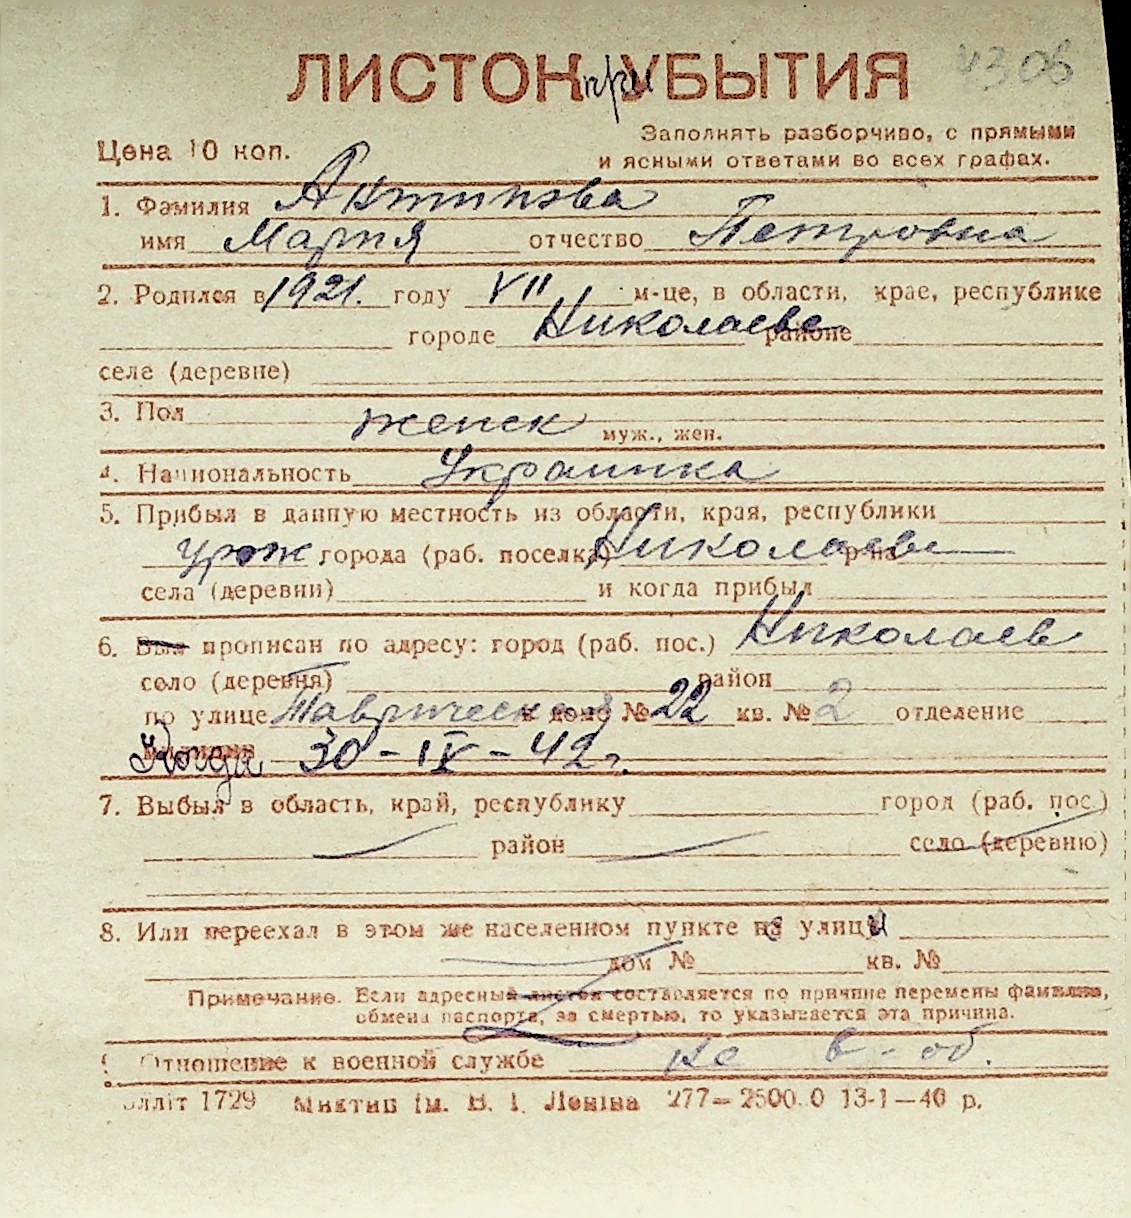 ЛИСТОК при УБЫТИЯ 4308
Цена 10 коп.
Заполнять разборчиво, с прямыми
и ясными ответами во всех графах.
1. Фамилия Антипова
имя Мария отчество Петровна
2. Родился в 1921. году VII м-це, в области, крае, республике
городе Николаеве районе
селе (деревне)
3. Пол женск муж., жен.
4. Национальность Украинка
5. Прибыл в данную местность из области, края, республики
урож города (раб. поселка) Николаева р-на
села (деревни) и когда прибыл
6. Был прописан по адресу: город (раб. пос.) Николаев
село (деревня) район
по улице Таврическая в доме № 22 кв. № 2 отделение
Когда 30-IV-42 г.
7. Выбыл в область, край, республику город (раб. пос.)
район село (деревню)
8. Или переехал в этом же населенном пункте на улицу
дом № кв. №
Примечание. Если адресный листок составляется по причине перемены фамилии,
обмена паспорта, за смертью, то указывается эта причина.
9. Отношение к военной службе не в-об.
літ 1729 Миктип ім. В. І. Леніна 277—2500.0 13-1—40 р.